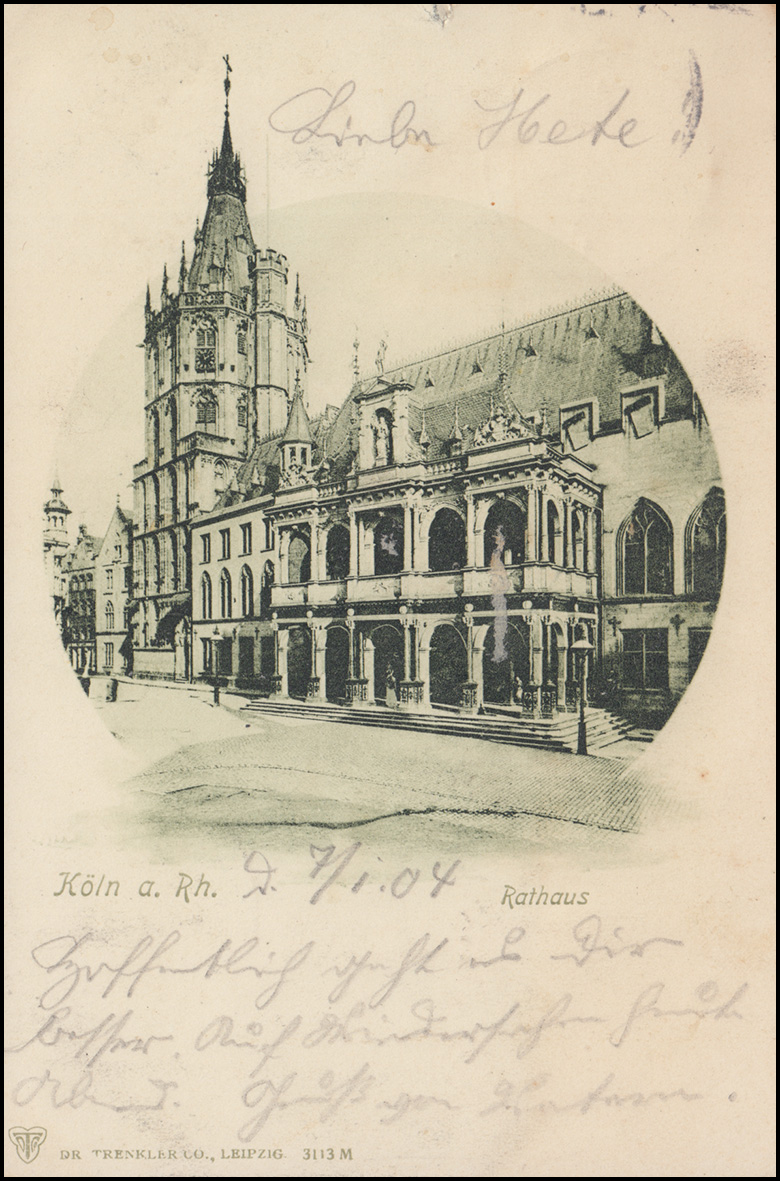 Liebe Hete!
Köln a. Rh. d. 7/1.04 Rathaus
Hoffentlich geht es Dir
besser. Auf Wiedersehen heute
Abend. Gruß von
DR. TRENKLER CO., LEIPZIG. 3113 M